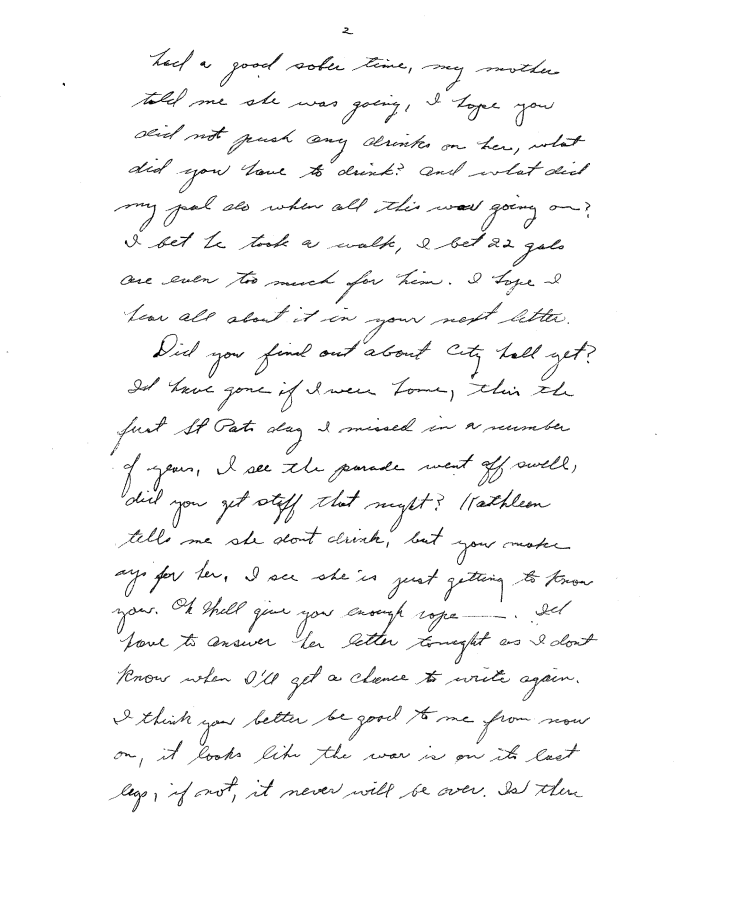 2
had a good sober time, my mother
told me she was going, I hope you
did not push any drinks on her, what
did you have to drink? and what did
my pal do when all this was going on?
I bet he took a walk, I bet 22 gals
are even too much for him. I hope I
hear all about it in your next letter.
Did you find out about City hall yet?
Id have gone if I were home, this the
first St Pats day I missed in a number
of years, I see the parade went off swell,
did you get stiff that night? Kathleen
tells me she dont drink, but you make
up for her, I see she is just getting to know
you. Oh Shell give you enough rope ——. Id
have to answer her letter tonight as I dont
know when I'll get a chance to write again.
I think you better be good to me from now
on, it looks like the war is on its last
legs, if not, it never will be over. Is there